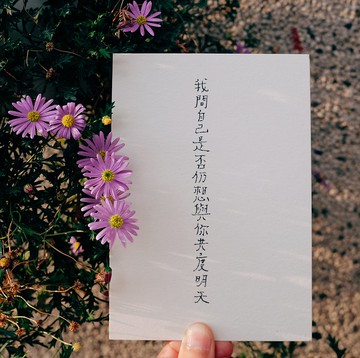 我問自己是否仍想與你共度明天